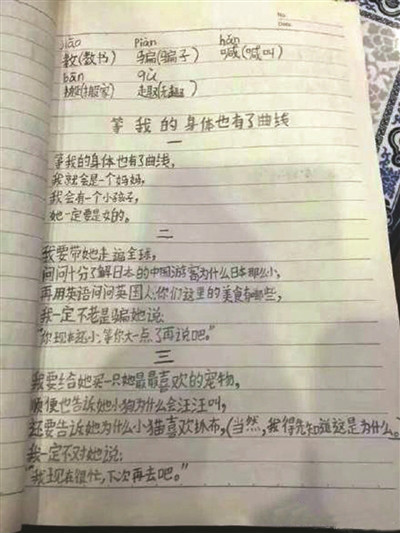 No.
Date.
jiāo piàn hǎn
教(教书) 骗(骗子) 喊(喊叫)
bān qù
搬(搬家) 趣(无趣)
等我的身体也有了曲线
一
等我的身体也有了曲线,
我就会是一个妈妈,
我会有一个小孩子,
她一定要是女的。
二
我要带她走遍全球,
问问十分了解日本的中国游客为什么日本那么小,
再用英语问问英国人:你们这里的美食有哪些,
我一定不老是骗她说:
“你现在还小,等你大一点了再说吧。”
三
我要给她买一只她最最喜欢的宠物,
顺便也告诉她小狗为什么会汪汪叫,
还要告诉她为什么小猫喜欢抓布,(当然,我得先知道这是为什么。)
我一定不对她说:
“我现在很忙,下次再去吧。”